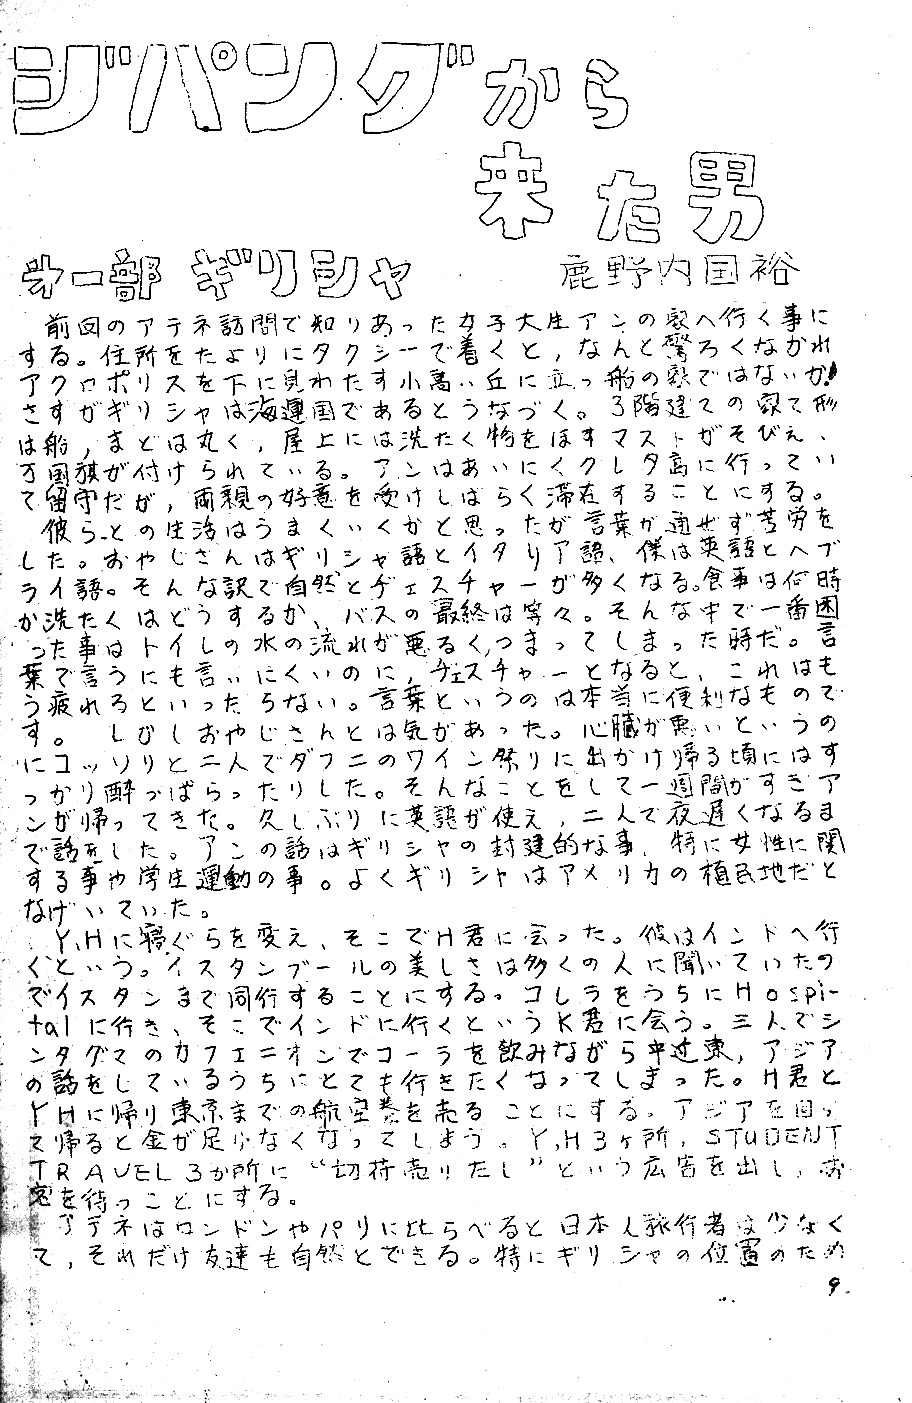 ジパングから
来た男
第一部 ギリシャ 鹿野内国裕
前回のアテネ訪問で知りあった女子大生アンの家へ行く事に
する。住所をたよりにタクシーで着くと,なんと驚ろくなかれ
アクロポリスを下に見わたす小高い丘に立つ船の家ではないか!
さすがギリシャは海運国であるとうなづく。3階建ての家で形
は船,まどは丸く,屋上には洗たく物をほすマストがそびえ、
万国旗が付けられている。アンはあいにくクレタ島に行ってい
て留守だが,両親の好意を受けしばらく滞在することにする。
彼らとの生活はうまくいくかと思ったが言葉が通ぜず苦労を
した。おやじさんはギリシャ語とイタリア語、僕は英語とヘブ
ライ語。そんな訳で自然とヂェスチャーが多くなる。食事は何時
か洗たくはどうするか、バスの最終は等々。そんな中で一番困
った事はトイレの水の流れが悪るく,つまってしまった時だ。言
葉で言うにも言いにくいのに,チェスチャーとなると、これはも
う疲れるといったらない。言葉というのは本当に便利なもので
す。 しびしおやじさんとは気があった。心臓が悪いというの
にコッソリと二人でダフニのワイン祭りに出かけ帰る頃にはす
っかり酔っぱらったりした。そんなことをして一週間がすぎア
ンが帰ってきた。久しぶりに英語が使え,二人で夜遅くなるま
で話をした。アンの話はギリシャの封建的な事、特に女性に関
する事や学生運動の事。よくギリシャはアメリカの植民地だと
なげいていた。
Y.Hに寝ぐらを変え、そこでH君に会った。彼はインドへ行
くという。イスタンブールの美しさは多くの人に聞いていたの
でイスタンまで同行することにする。コレラをうちにHospi-
talに行き、そこでインドに行くというK君に会う。三人でシ
ンタグマのカフェニオンでコーラを飲みながら中近東,アジア
の話をしているうちにとても行きたくなってしまった。H君と
YHに帰り東京までの航空券を売ることにする。アジアを回っ
て帰ると金が足りなくなってしまう。Y,H3ヶ所,STUDENT
TRAVEL3か所に“切符売りたし”という広告を出し,お
客を待つことにする。
アテネはロンドンやパリに比らべると日本人旅行者は少なく
て,それだけ友達も自然とできる。特にギリシャの位置のため
9.